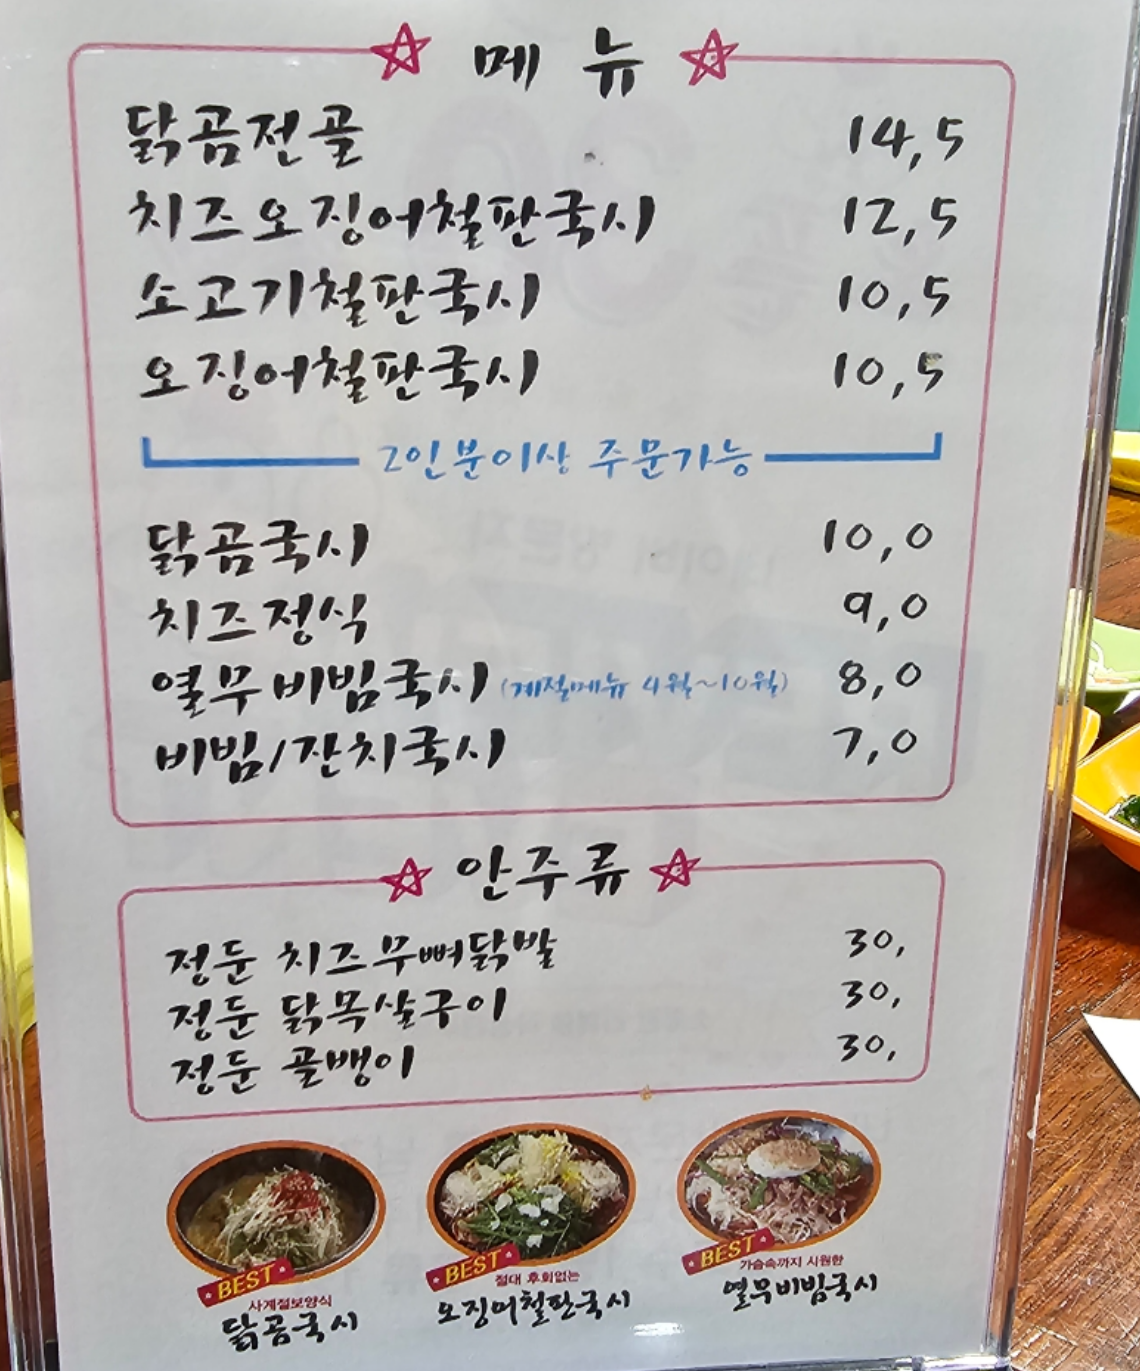 메 뉴
닭곰전골 14,5
치즈오징어철판국시 12,5
소고기철판국시 10,5
오징어철판국시 10,5
2인분이상 주문가능
닭곰국시 10,0
치즈정식 9,0
열무비빔국시 (계절메뉴 4월~10월) 8,0
비빔/잔치국시 7,0
안주류
정둔 치즈무뼈닭발 30,
정둔 닭목살구이 30,
정둔 골뱅이 30,
BEST
사계절보양식
닭곰국시
BEST
절대 후회없는
오징어철판국시
BEST
가슴속까지 시원한
열무비빔국시